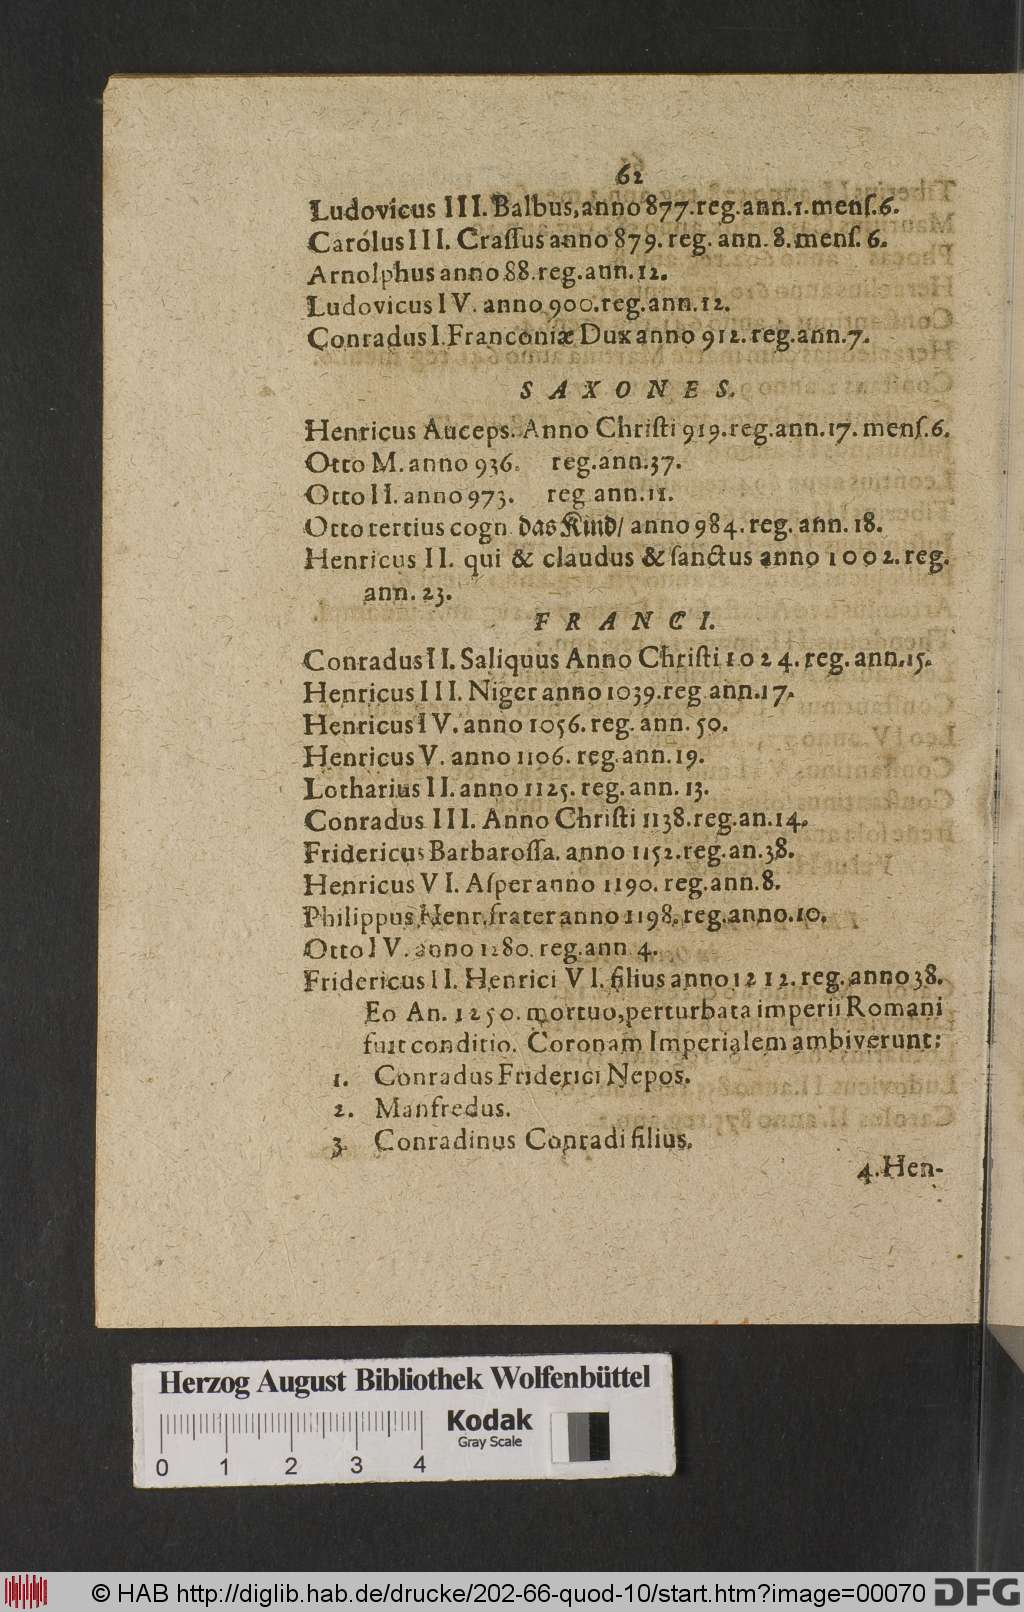 62
Ludovicus III. Balbus, anno 877. reg. ann. 1. menſ. 6.
Carólus III. Craſſus anno 879. reg. ann. 8. menſ. 6.
Arnolphus anno 88. reg. ann. 12.
Ludovicus IV. anno 900. reg. ann. 12.
Conradus I. Franconiæ Dux anno 912. reg. ann. 7.
SAXONES.
Henricus Auceps. Anno Chriſti 919. reg. ann. 17. menſ. 6.
Otto M. anno 936. reg. ann. 37.
Otto II. anno 973. reg ann. 11.
Otto tertius cogn. das Kind/ anno 984. reg. ann. 18.
Henricus II. qui & claudus & ſanctus anno 1002. reg.
ann. 23.
FRANCI.
Conradus II. Saliquus Anno Chriſti 1024. reg. ann. 15.
Henricus III. Niger anno 1039. reg ann. 17.
Henricus IV. anno 1056. reg. ann. 50.
Henricus V. anno 1106. reg. ann. 19.
Lotharius II. anno 1125. reg. ann. 13.
Conradus III. Anno Chriſti 1138. reg. an. 14.
Fridericus Barbaroſſa. anno 1152. reg. an. 38.
Henricus VI. Aſper anno 1190. reg. ann. 8.
Philippus Henr. frater anno 1198. reg. anno. 10.
Otto IV. anno 1280. reg. ann 4.
Fridericus II. Henrici VI. filius anno 1212. reg. anno 38.
Eo An. 1250. mortuo, perturbata imperii Romani
fuit conditio. Coronam Imperialem ambiverunt:
1. Conradus Friderici Nepos.
2. Manfredus.
3. Conradinus Conradi filius.
4. Hen-
Herzog August Bibliothek Wolfenbüttel
Kodak
Gray Scale
0 1 2 3 4
© HAB http://diglib.hab.de/drucke/202-66-quod-10/start.htm?image=00070 DFG